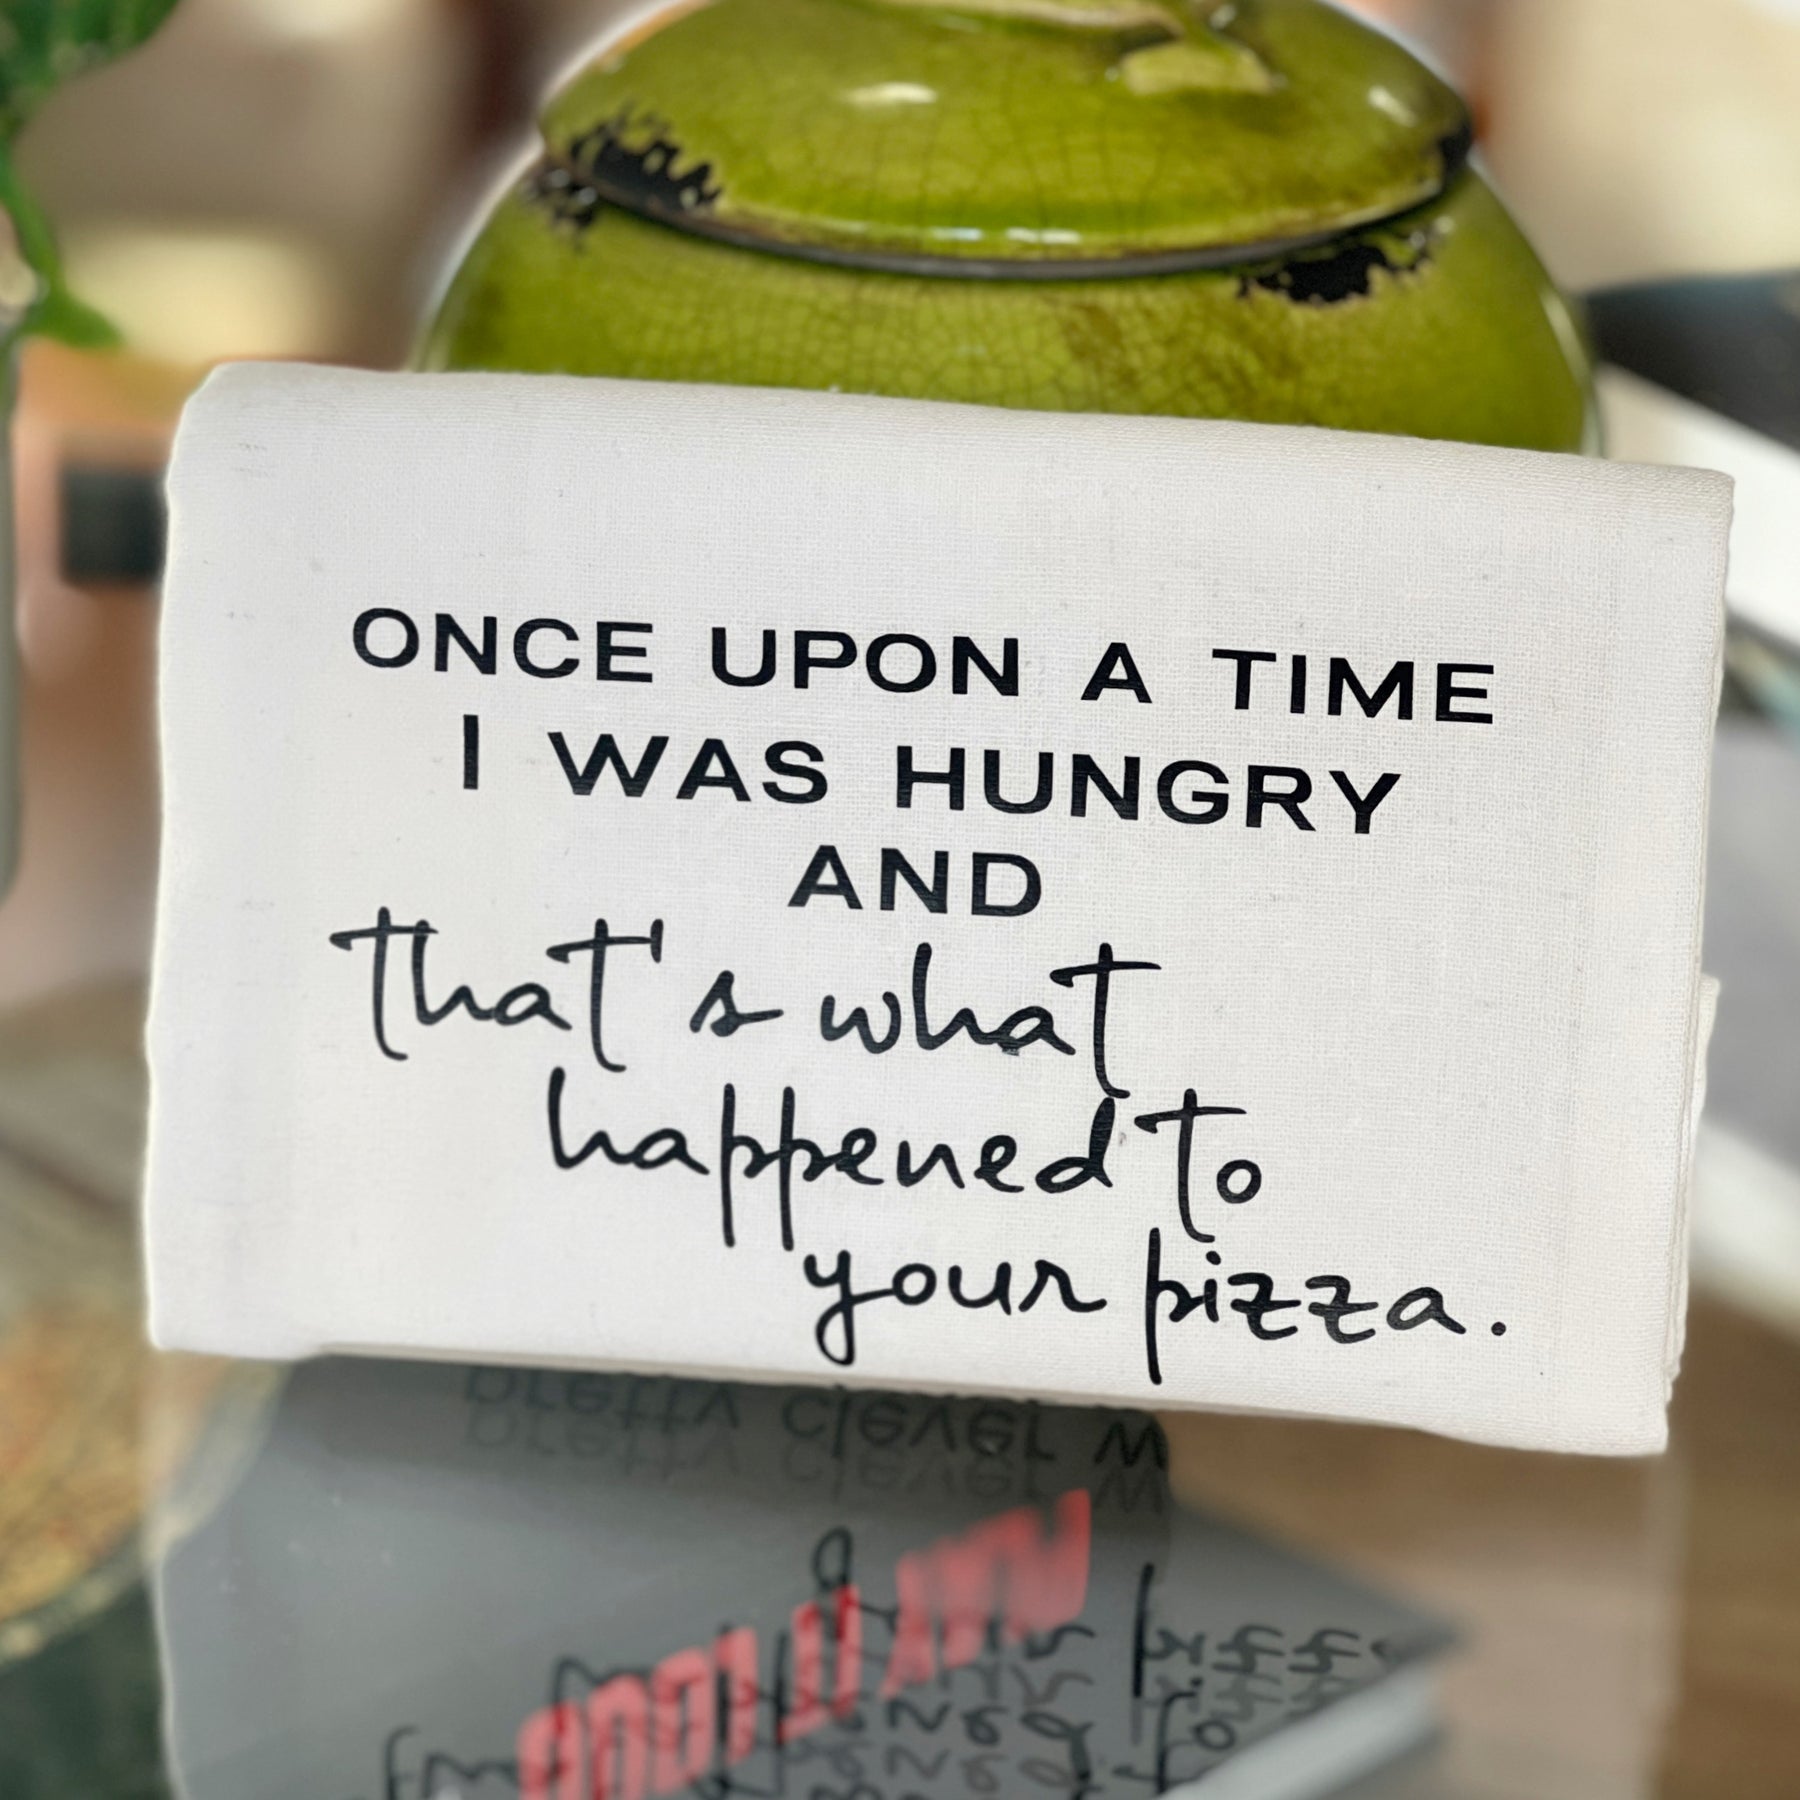 ONCE UPON A TIME
I WAS HUNGRY
AND
that's what
happened to
your pizza.
pretty clever w